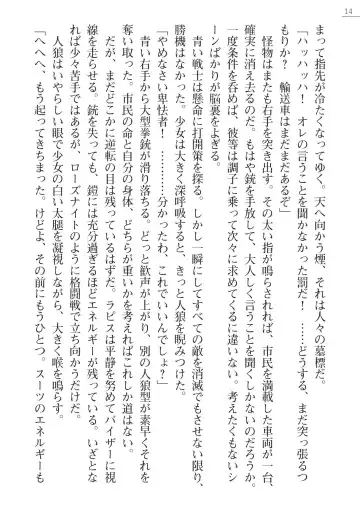 14
まって指先が冷たくなってゆく。天へ向かう煙、それは人々の墓標だ。
「ハッハッハ！　オレの言うことを聞かなかった罰だ！　……どうする、まだ突っ張るつ
もりか？　輸送車はまだまだあるぞ」
怪物はまたも右手を突き出す。その太い指が鳴らされれば、市民を満載した車両が一台、
確実に消え去るのだ。もはや銃を手放して、大人しく言うことを聞くしかないのだろうか。
一度条件を呑めば、彼等は調子に乗って次々に求めてくるに違いない。考えたくもないシ
ーンばかりが脳裏をよぎる。
青い戦士は懸命に打開策を探る。しかし一瞬にしてすべての敵を消滅でもさせない限り、
勝機はなかった。少女は大きく深呼吸すると、きっと人狼を睨みつけた。
「やめなさい卑怯者！　…………分かったわ、これでいいんでしょ？」
青い右手から大型拳銃が滑り落ちる。どっと歓声が上がり、別の人狼型が素早くそれを
奪い取った。市民の命と自分の身体、どちらが重いかを考えればこれしか道はない。
だが、まだどこかに逆転の目は残っているはずだ。ラピスは平静を努めてバイザーに視
線を走らせる。銃を失っても、鎧には充分過ぎるほどエネルギーが残っている。いざとな
れば、少々苦手ではあるが、ローズナイトのように格闘戦で打ちのめすこともできるのだ。
人狼はいやらしい眼で少女の白い太腿を凝視しながら、大きく喉を鳴らす。
「へへへ、もう起ってきちまった。けどよ、その前にもうひとつ。スーツのエネルギーも